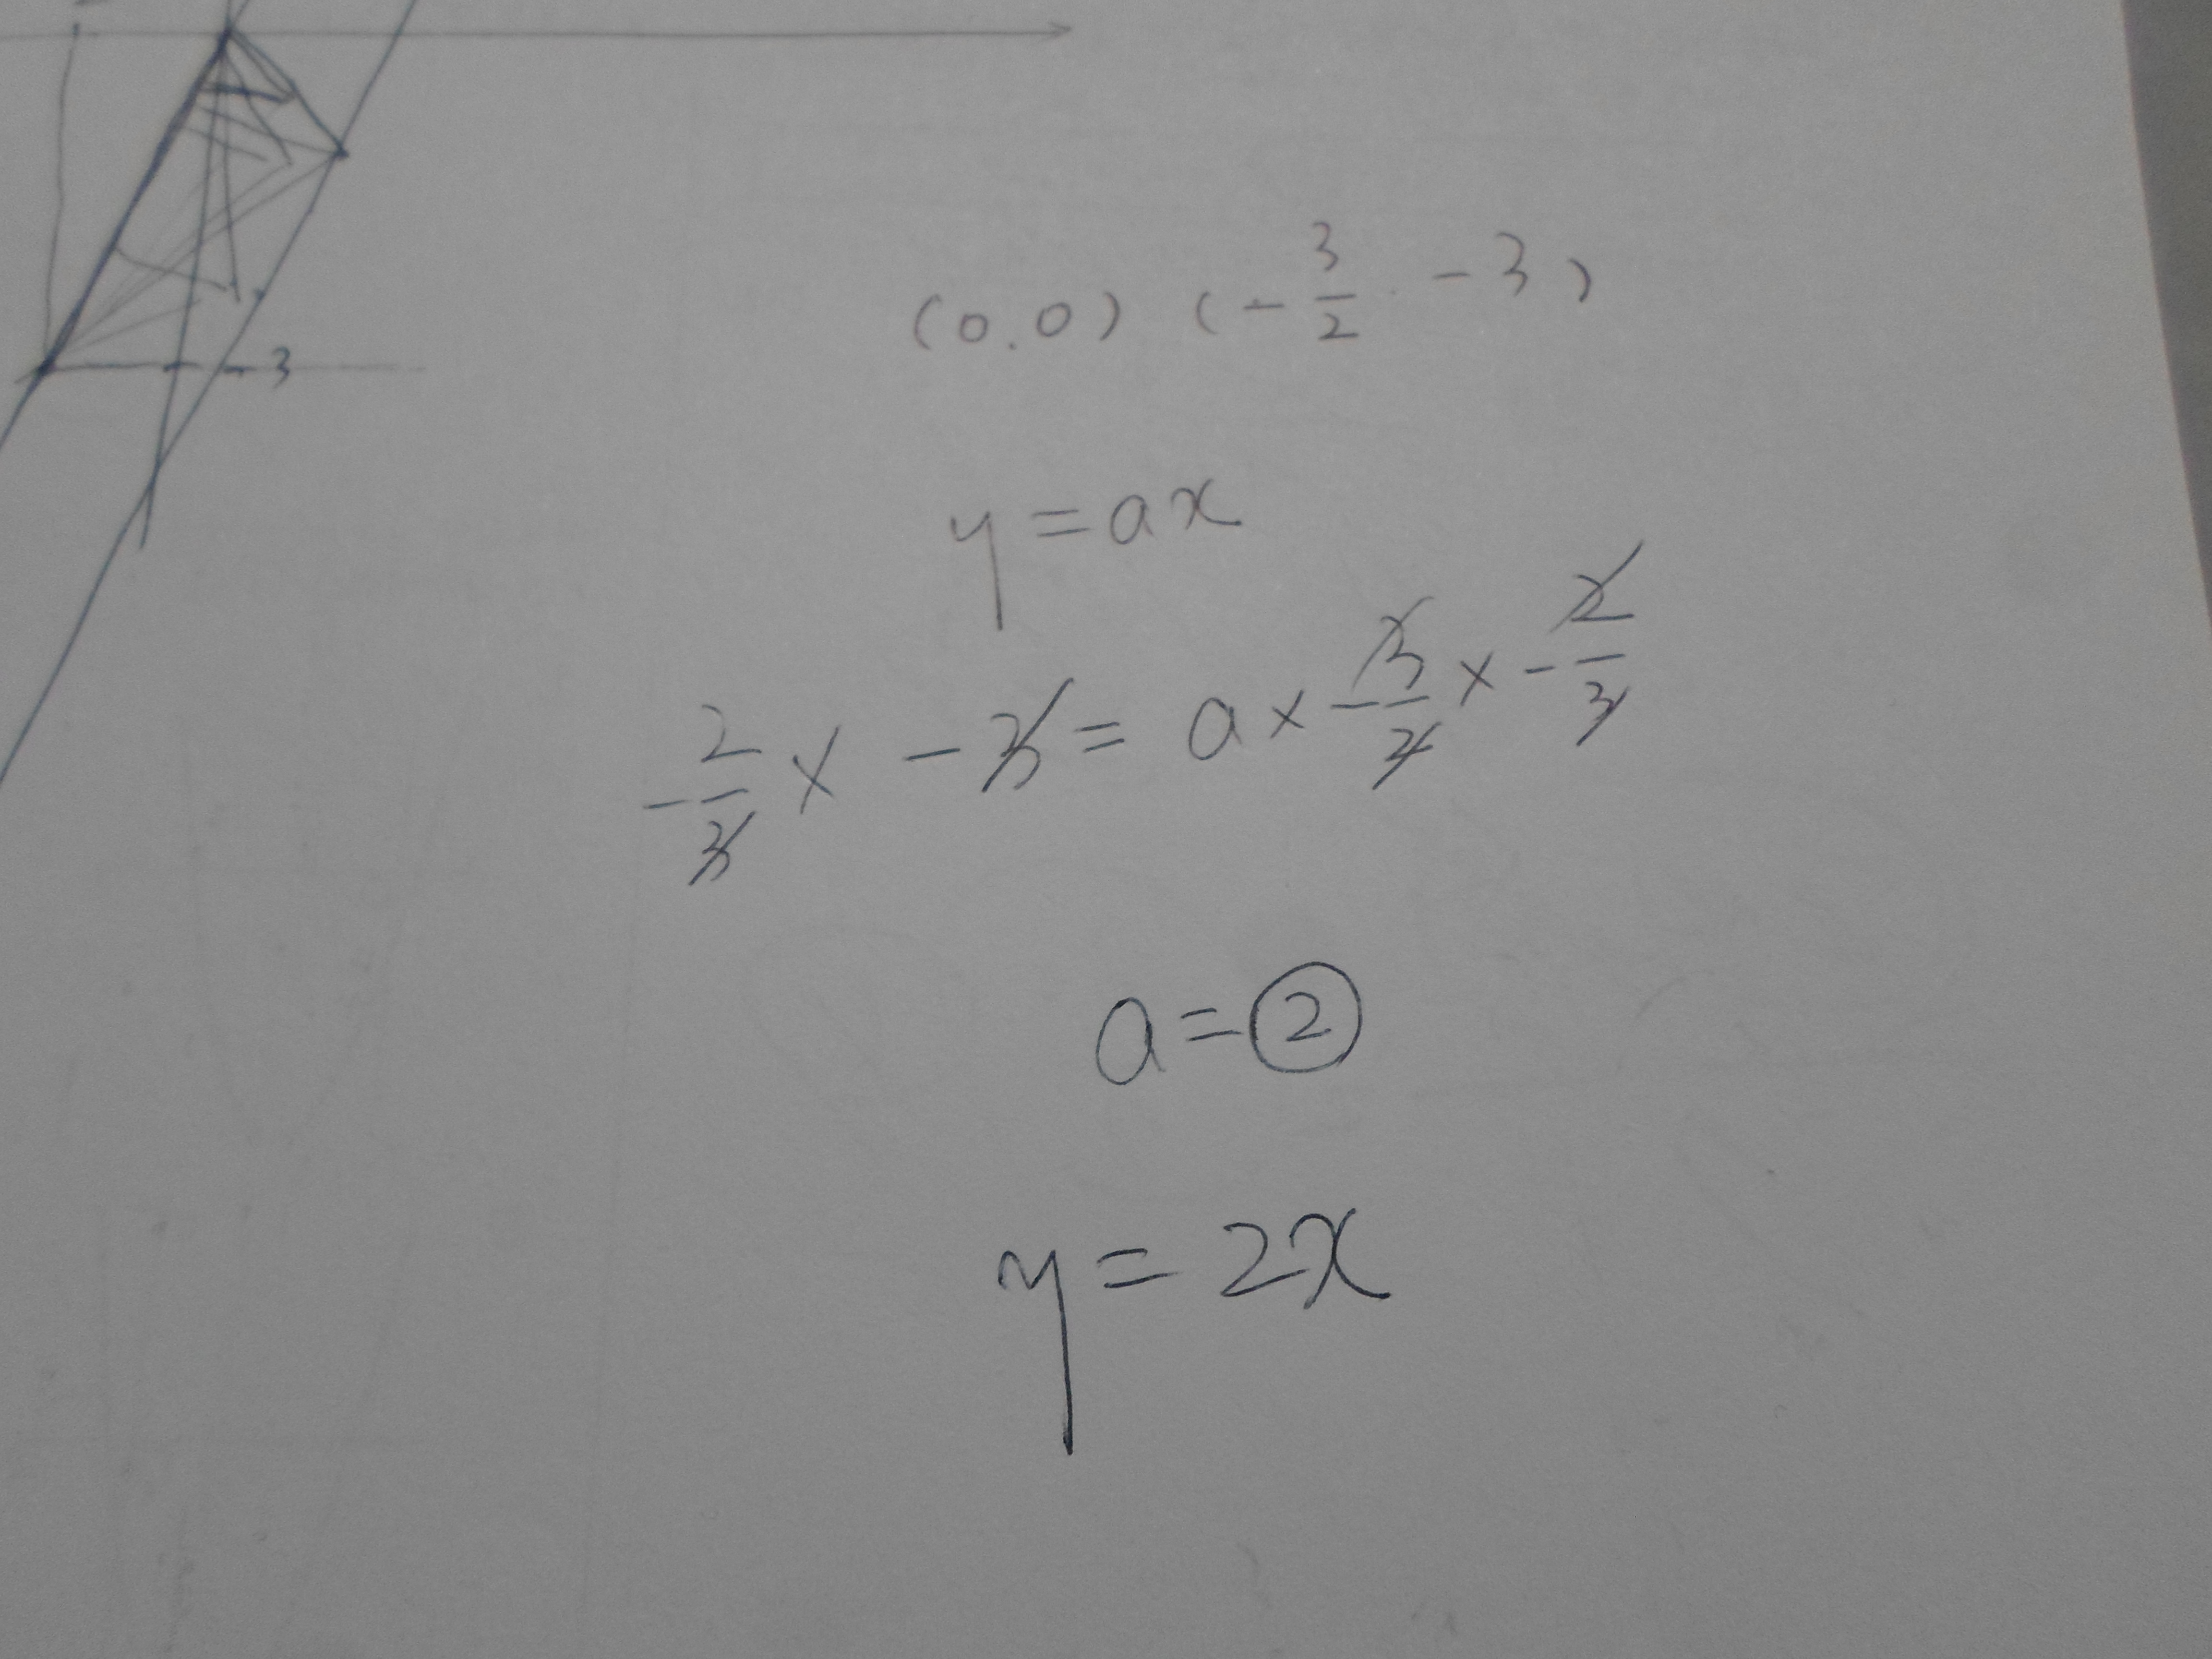 -3
(0.0) (-3/2 . -3)
y = ax
-2/3 × -3 = a × -3/2 × -2/3
a = ②
y = 2x